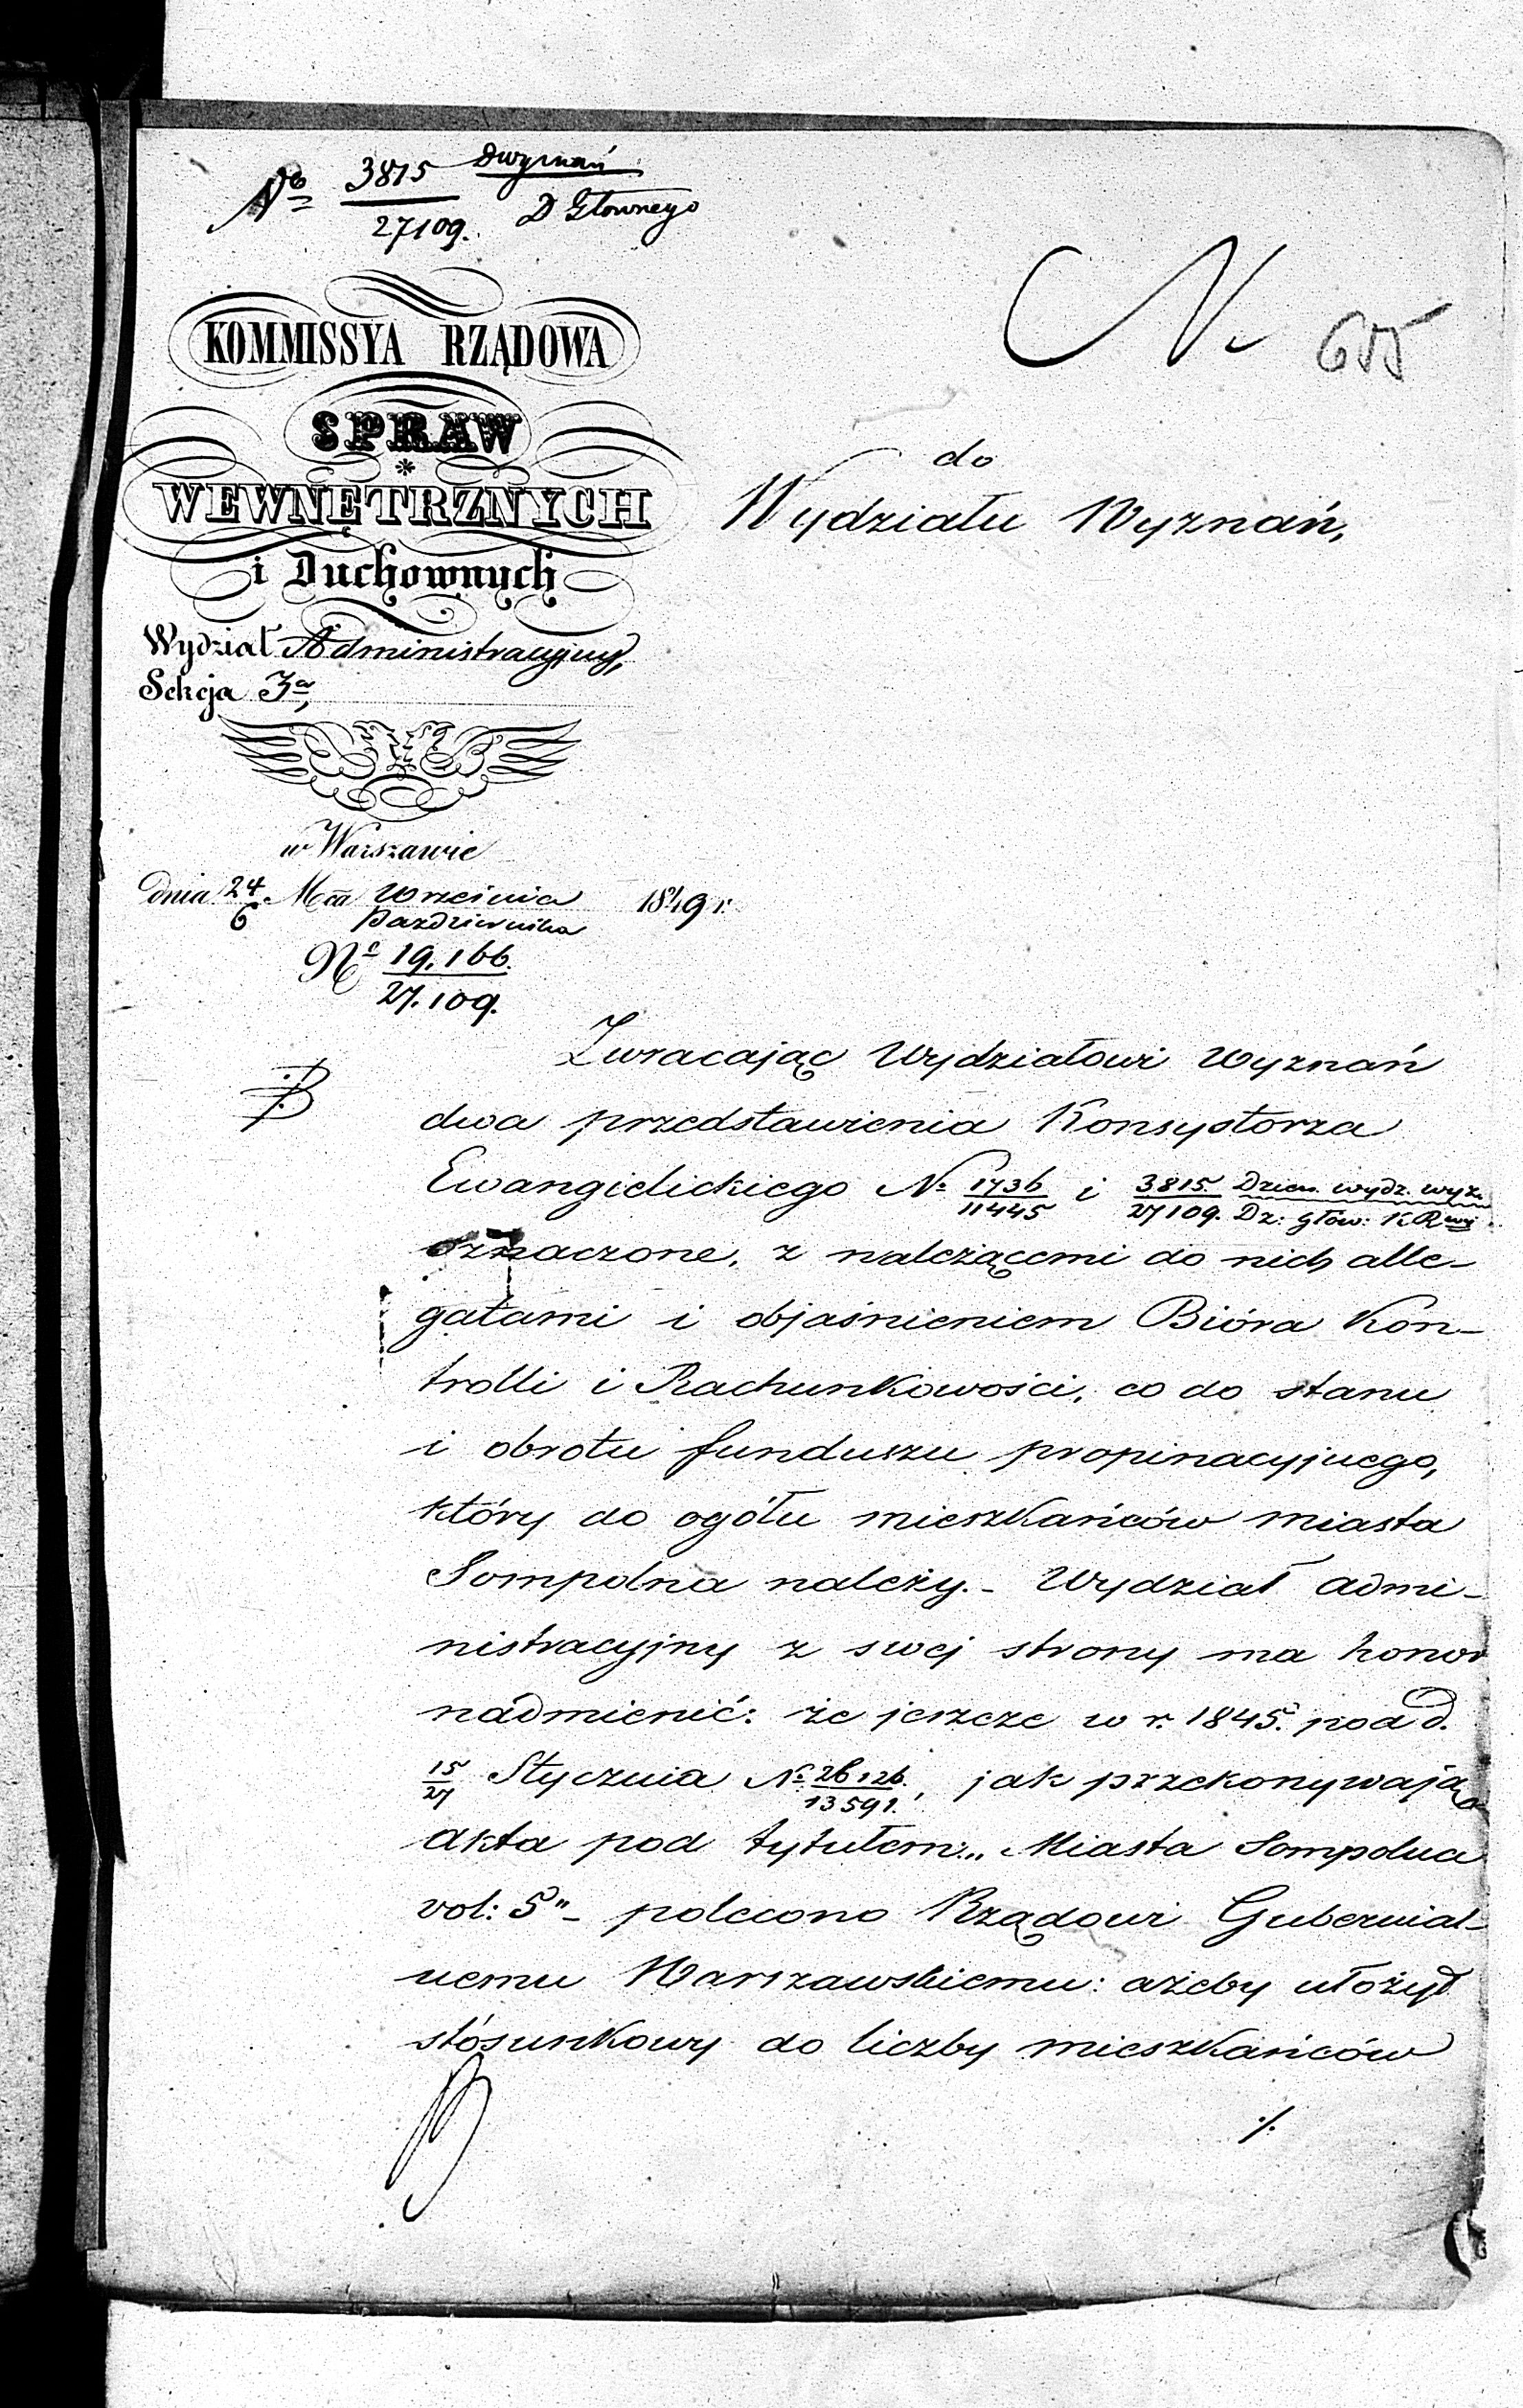 No 3815/27109. D Wyznań / D Głownego
N. 655
KOMMISSYA RZĄDOWA
SPRAW
WEWNĘTRZNYCH
i Duchownych
Wydział Administracyjny,
Sekcja 3a,
do
Wydziału Wyznań,
w Warszawie
dnia 24/6 Mca Września/Października 1849 r.
No 19.166./27.109.
Zwracając Wydziałowi Wyznań
dwa przedstawienia Konsystorza
Ewangielickiego No 1736/11445 i 3815./27109. Dzien. wydz. wyz./Dz: głów: KR
oznaczone, z należącemi do nich alle-
gatami i objaśnieniem Bióra Kon-
trolli i Rachunkowości, co do stanu
i obrotu funduszu propinacyjnego,
który do ogółu mieszkańców miasta
Sompolna należy. – Wydział admi-
nistracyjny z swej strony ma honor
nadmienić: że jeszcze w r. 1845. pod d.
15/27 Stycznia No 26126./13591., jak przekonywają
akta pod tytułem: „Miasta Sompolna
vol: 5" – polecono Rządowi Gubernial-
nemu Warszawskiemu: ażeby ułożył
stósunkowy do liczby mieszkańców
./.